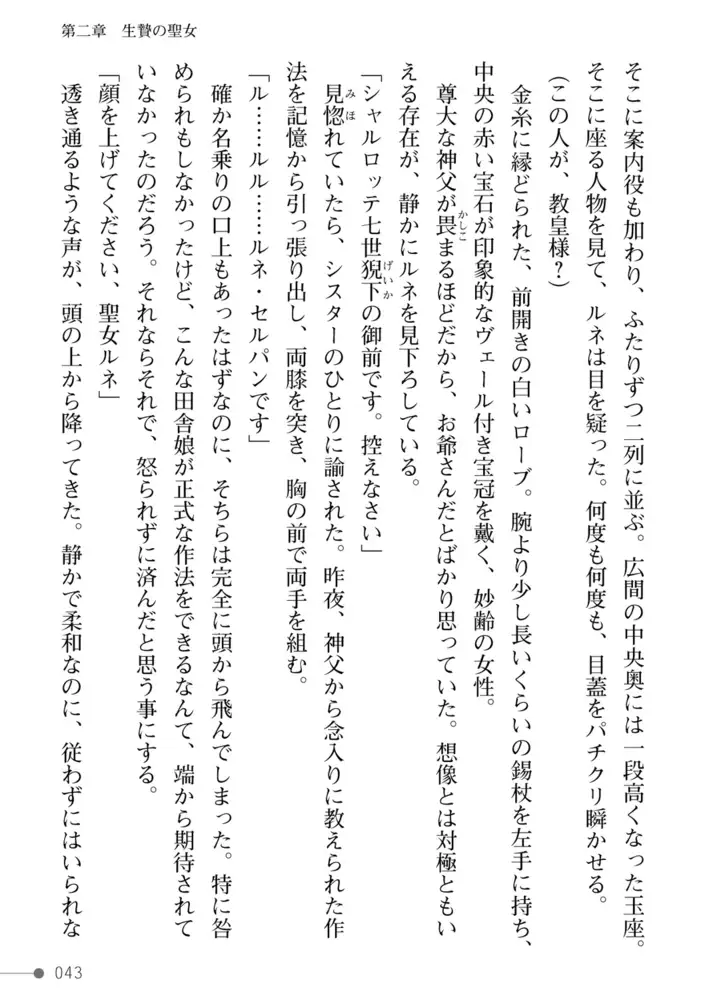 第二章　生贄の聖女
そこに案内役も加わり、ふたりずつ二列に並ぶ。広間の中央奥には一段高くなった玉座。
そこに座る人物を見て、ルネは目を疑った。何度も何度も、目蓋をパチクリ瞬かせる。
(この人が、教皇様？)
金糸に縁どられた、前開きの白いローブ。腕より少し長いくらいの錫杖を左手に持ち、
中央の赤い宝石が印象的なヴェール付き宝冠を戴く、妙齢の女性。
尊大な神父が畏まるほどだから、お爺さんだとばかり思っていた。想像とは対極ともい
える存在が、静かにルネを見下ろしている。
「シャルロッテ七世猊下の御前です。控えなさい」
見惚れていたら、シスターのひとりに諭された。昨夜、神父から念入りに教えられた作
法を記憶から引っ張り出し、両膝を突き、胸の前で両手を組む。
「ル……ルル……ルネ・セルパンです」
確か名乗りの口上もあったはずなのに、そちらは完全に頭から飛んでしまった。特に咎
められもしなかったけど、こんな田舎娘が正式な作法をできるなんて、端から期待されて
いなかったのだろう。それならそれで、怒られずに済んだと思う事にする。
「顔を上げてください、聖女ルネ」
透き通るような声が、頭の上から降ってきた。静かで柔和なのに、従わずにはいられな
043